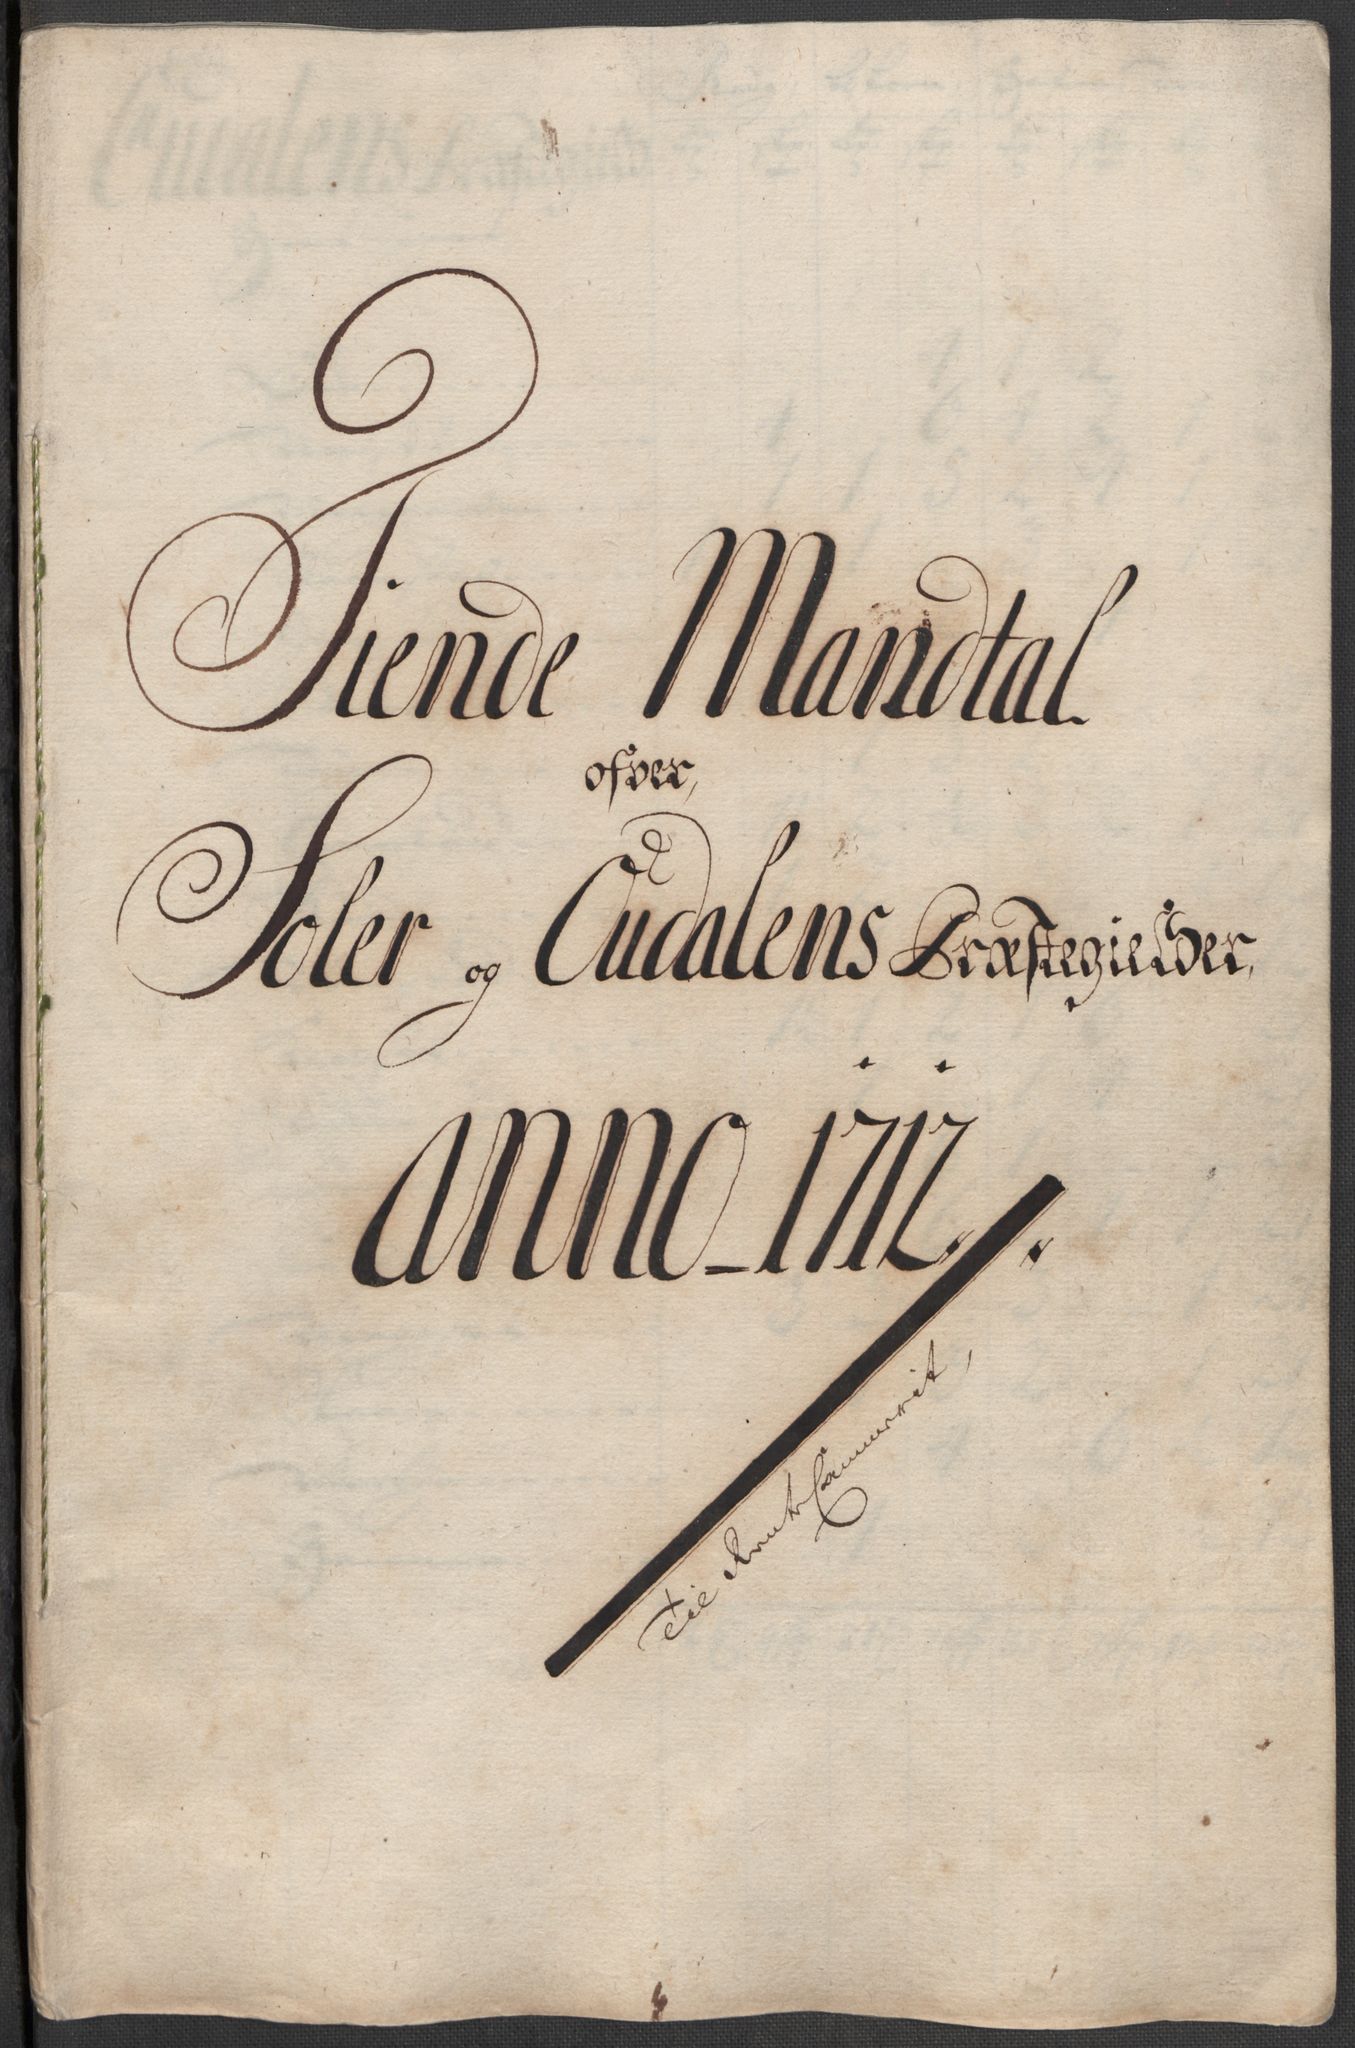 Tiende Mandtal
ofver,
Soler og Oudalens Præstegielder,
anno 1717.
Til Rente Cammerit,